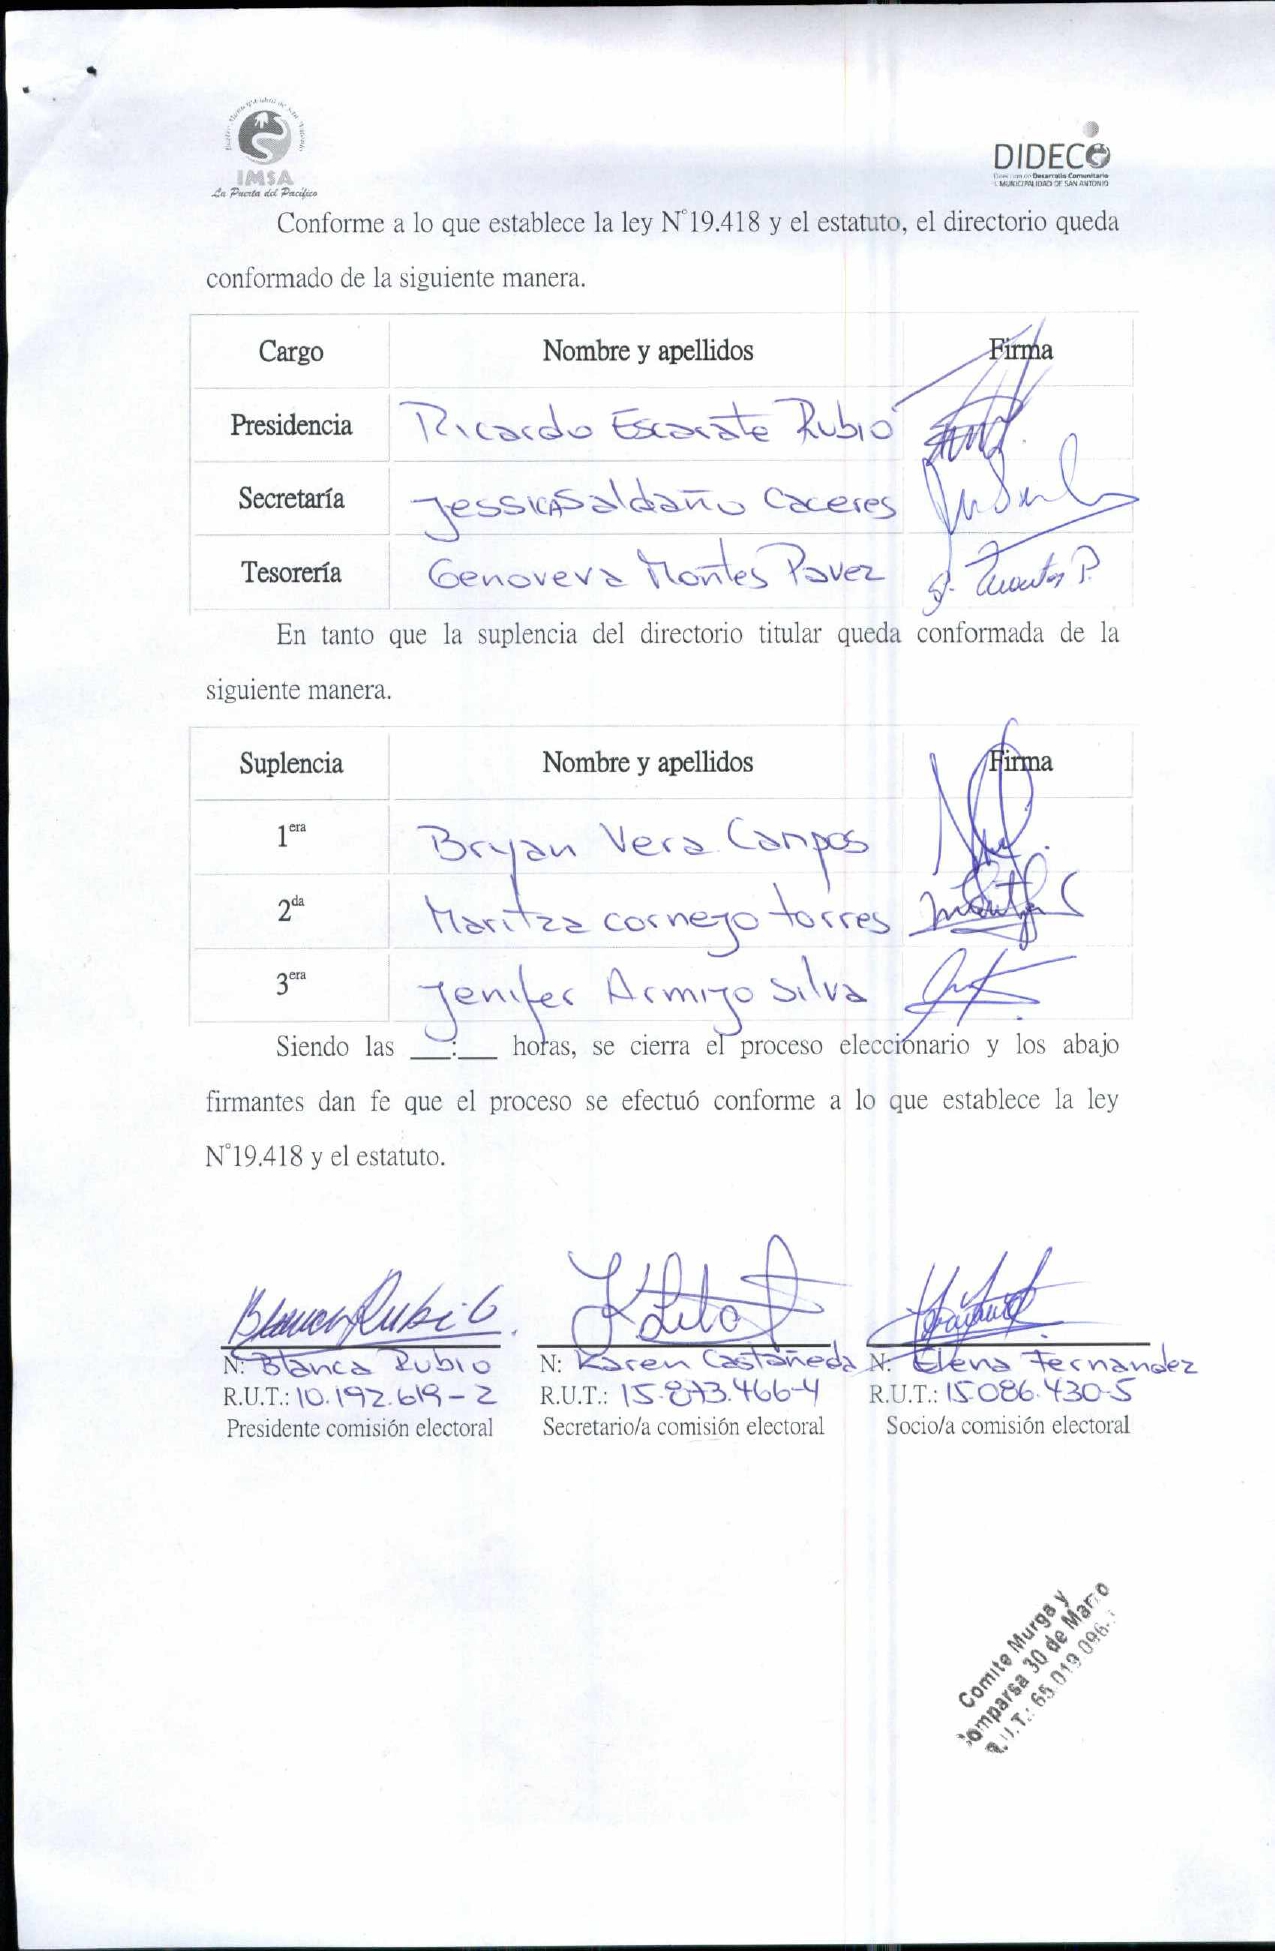 IMSA
La Puerta del Pacífico
DIDECO
Dirección de Desarrollo Comunitario
I. MUNICIPALIDAD DE SAN ANTONIO
Conforme a lo que establece la ley N°19.418 y el estatuto, el directorio queda
conformado de la siguiente manera.
Cargo Nombre y apellidos Firma
Presidencia Ricardo Escarate Rubio
Secretaría Jessica Saldaño Caceres
Tesorería Genoveva Montes Pavez
En tanto que la suplencia del directorio titular queda conformada de la
siguiente manera.
Suplencia Nombre y apellidos Firma
1era Bryan Vera Campos
2da Maritza cornejo torres
3era Jenifer Armijo Silva
Siendo las __:__ horas, se cierra el proceso eleccionario y los abajo
firmantes dan fe que el proceso se efectuó conforme a lo que establece la ley
N°19.418 y el estatuto.
Blanca Rubio
N: Blanca Rubio N: Karen Castañeda N: Elena Fernandez
R.U.T.: 10.192.619-2 R.U.T.: 15.873.466-4 R.U.T.: 15.086.430-5
Presidente comisión electoral Secretario/a comisión electoral Socio/a comisión electoral
Comite Murga y
Comparsa 30 de Marzo
R.U.T.: 65.019.096-